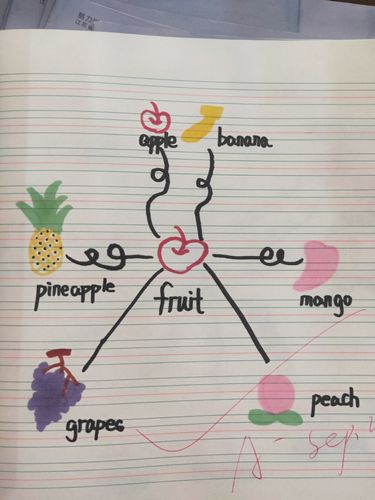 apple banana
pineapple
fruit
mango
grapes
peach
A- Sep